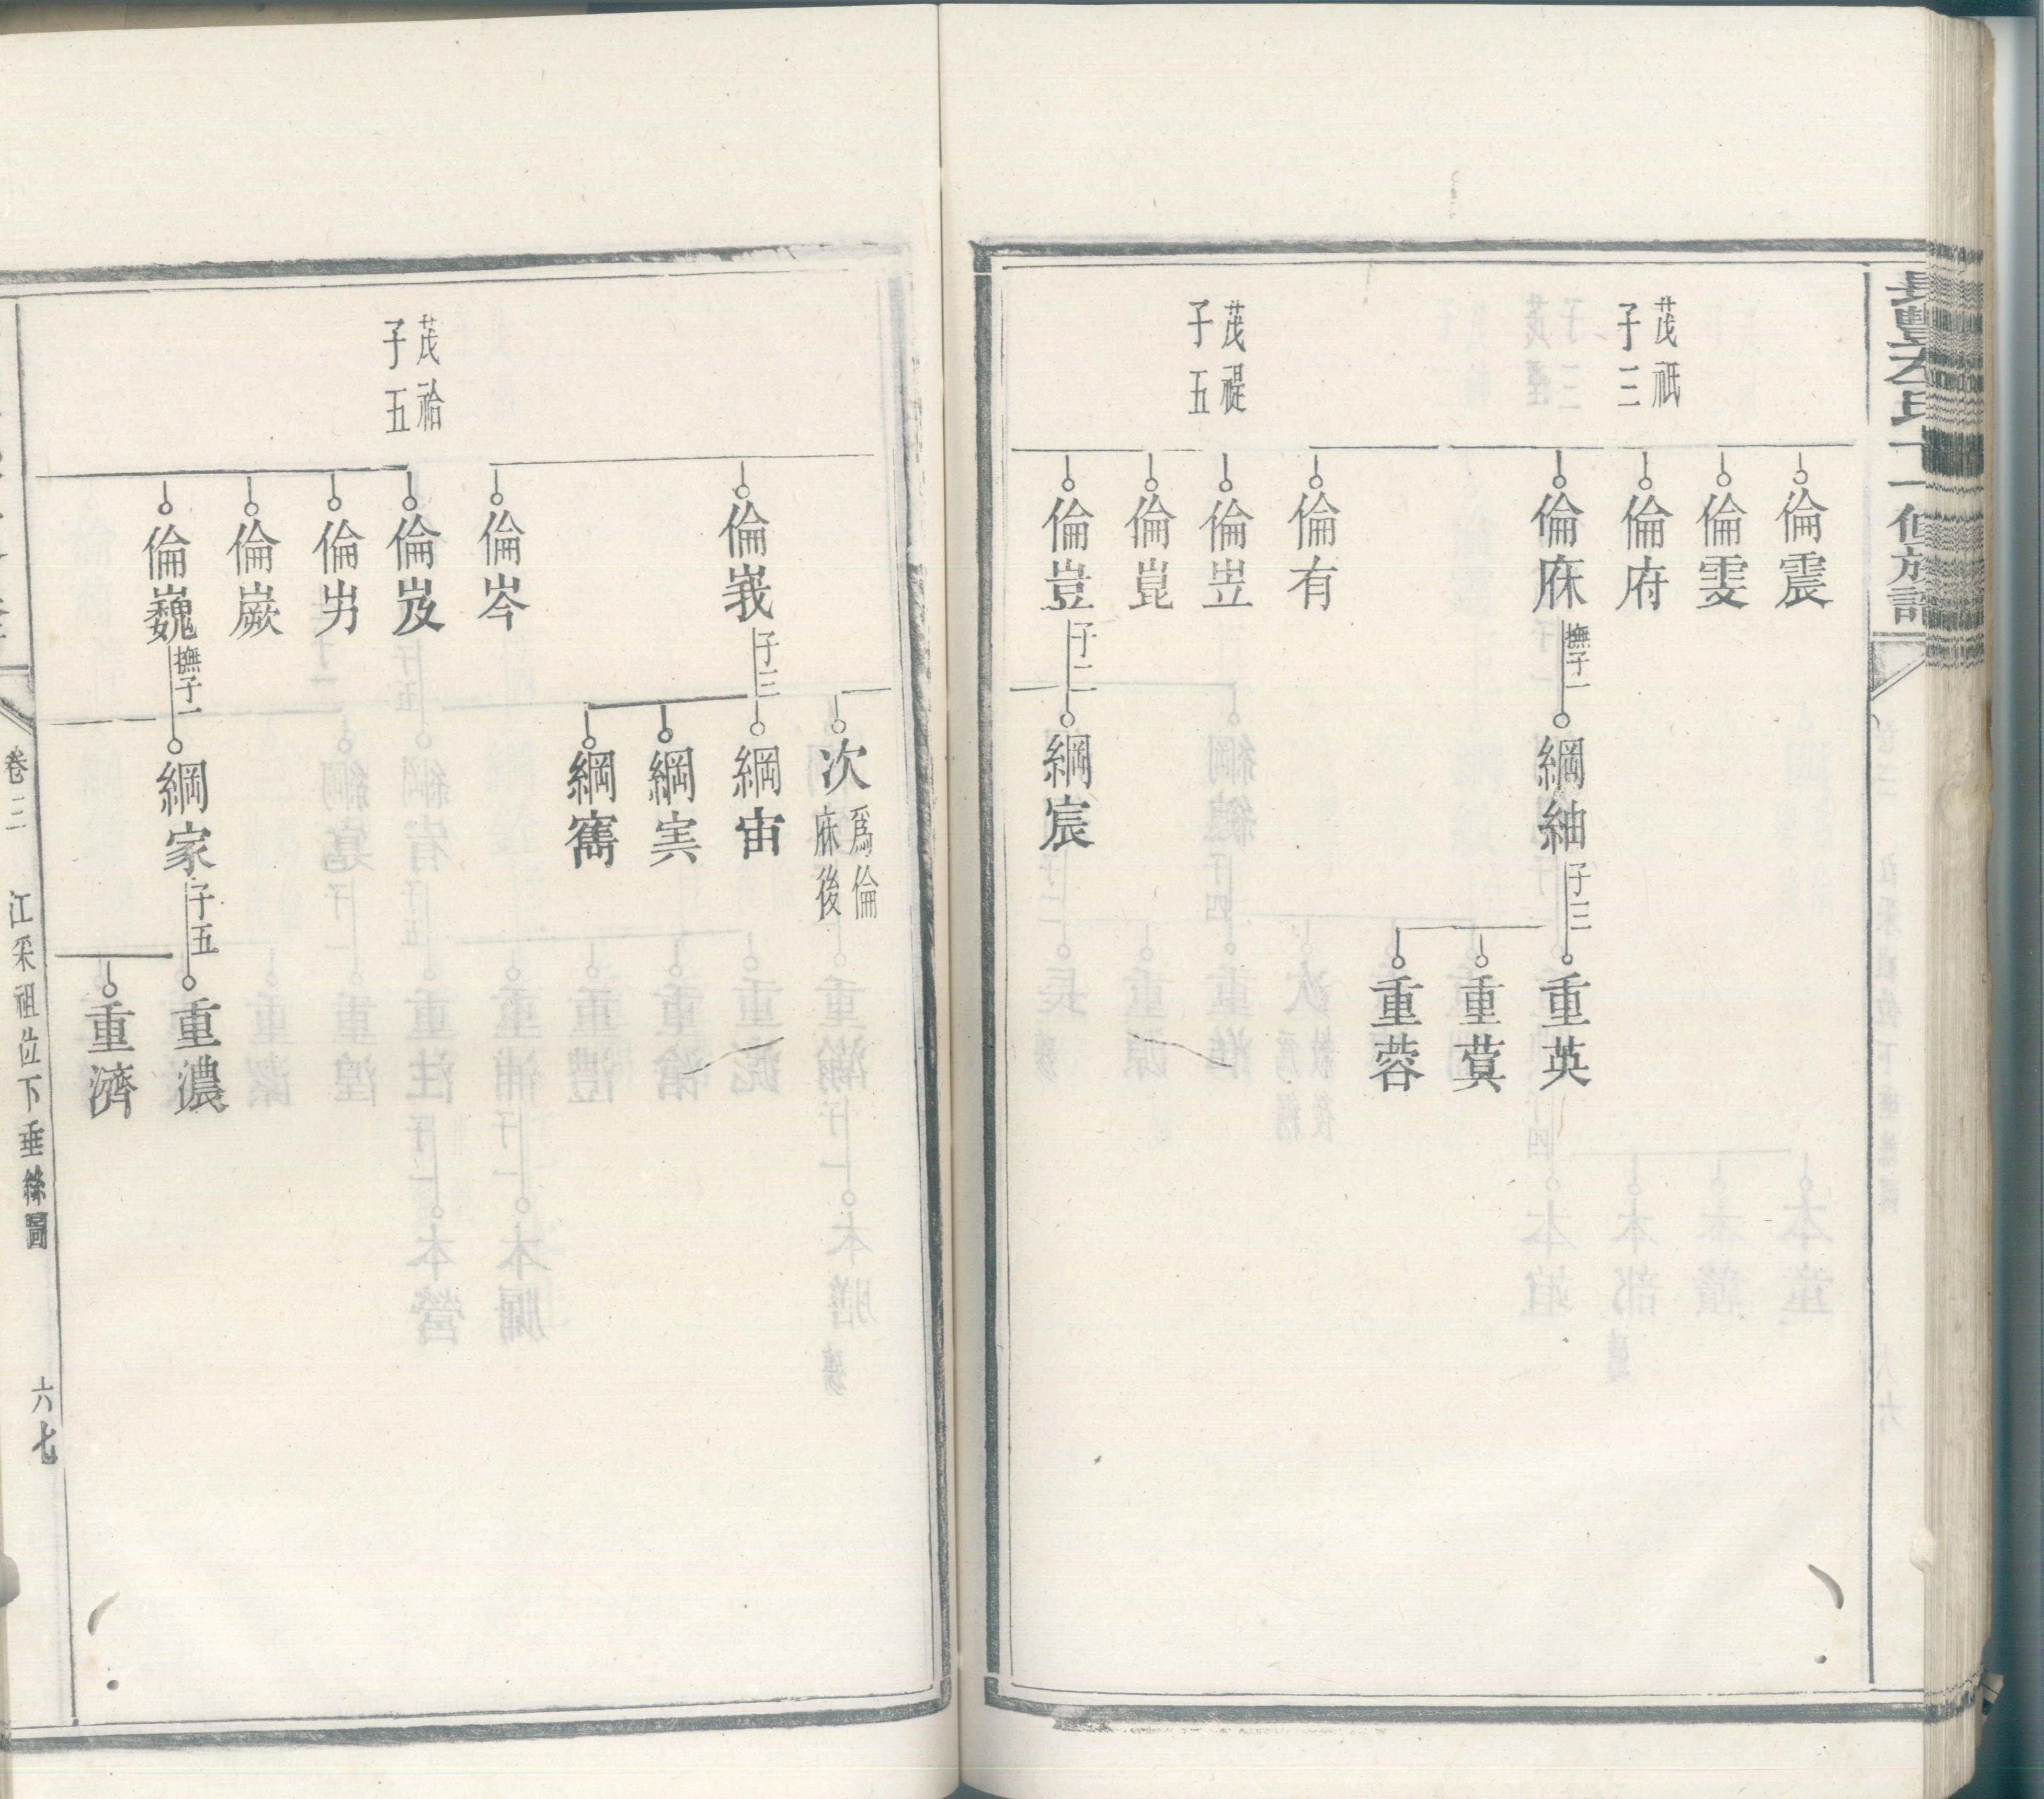 長豐左氏十一修族譜
茂祇
子三
倫震
倫雯
倫府
倫庥
撫子一
綱紬
子三
重英
重蓂
重蓉
茂禔
子五
倫有
倫岦
倫崑
倫豈
子二
綱宸
次
爲倫
庥後
倫峩
子三
綱宙
綱実
綱寯
倫岑
茂祫
子五
倫岌
倫屴
倫嶡
倫巍
撫子一
綱家
子五
重濃
重濟
卷三
江采祖位下垂絲圖
六七